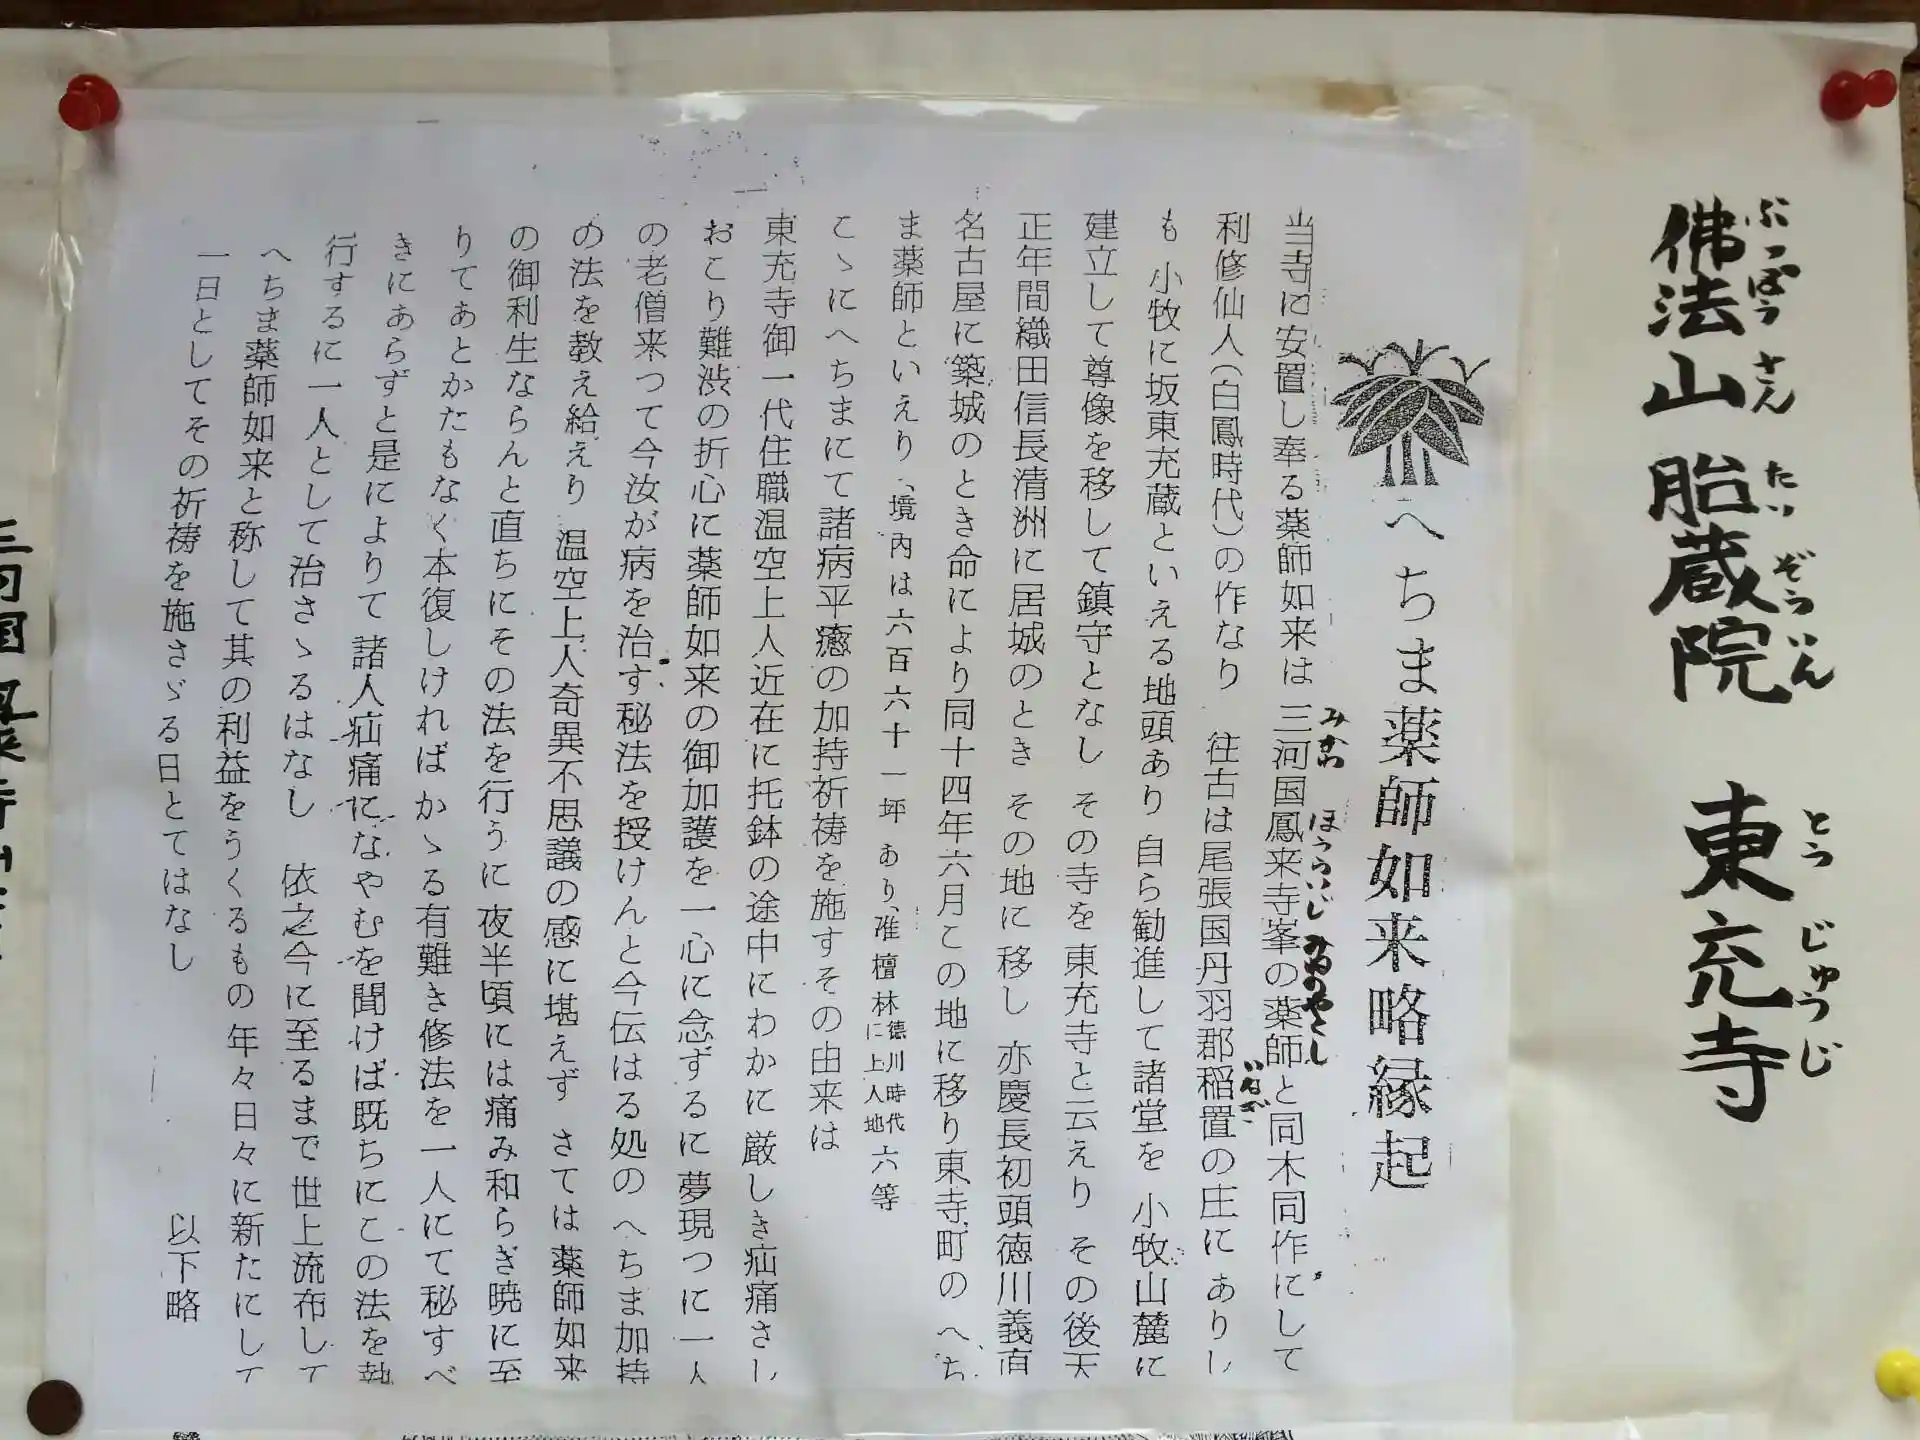 佛法山 胎蔵院 東充寺
ぶっぽうさん たいぞういん とうじゅうじ
へちま薬師如来略縁起
当寺に安置し奉る薬師如来は 三河国鳳来寺峯の薬師と同木同作にして
みかわ ほうらいじ みねのやくし
利修仙人(白鳳時代)の作なり 往古は尾張国丹羽郡稲置の庄にありし
いなぎ
も 小牧に坂東充蔵といえる地頭あり 自ら勧進して諸堂を 小牧山麓に
建立して尊像を移して鎮守となし その寺を東充寺と云えり その後天
正年間織田信長清洲に居城のとき その地に移し 亦慶長初頭徳川義直
名古屋に築城のとき命により同十四年六月この地に移り東寺町の へち
ま薬師といえり、境内は六百六十一坪 あり、准檀林 徳川時代に上人地 六等
こゝにへちまにて諸病平癒の加持祈祷を施すその由来は
東充寺御一代住職温空上人近在に托鉢の途中にわかに 厳しき疝痛さし
おこり難渋の折心に薬師如来の御加護を一心に念ずるに夢現つに一人
の老僧来つて今汝が病を治す秘法を授けんと今伝はる処の へちま加持
の法を教え給えり 温空上人奇異不思議の感に堪えず さては薬師如来
の御利生ならんと直ちにその法を行うに 夜半頃には痛み和らぎ暁に至
りてあとかたもなく本復しければ かゝる有難き修法を一人にて秘すべ
きにあらずと是によりて 諸人疝痛になやむを聞けば既ちにこの法を執
行するに一人として治さゝるはなし 依之今に至るまで世上流布して
へちま薬師如来と称して其の利益をうくるもの 年々日々に新たにして
一日としてその祈祷を施さゞる日とてはなし
以下略